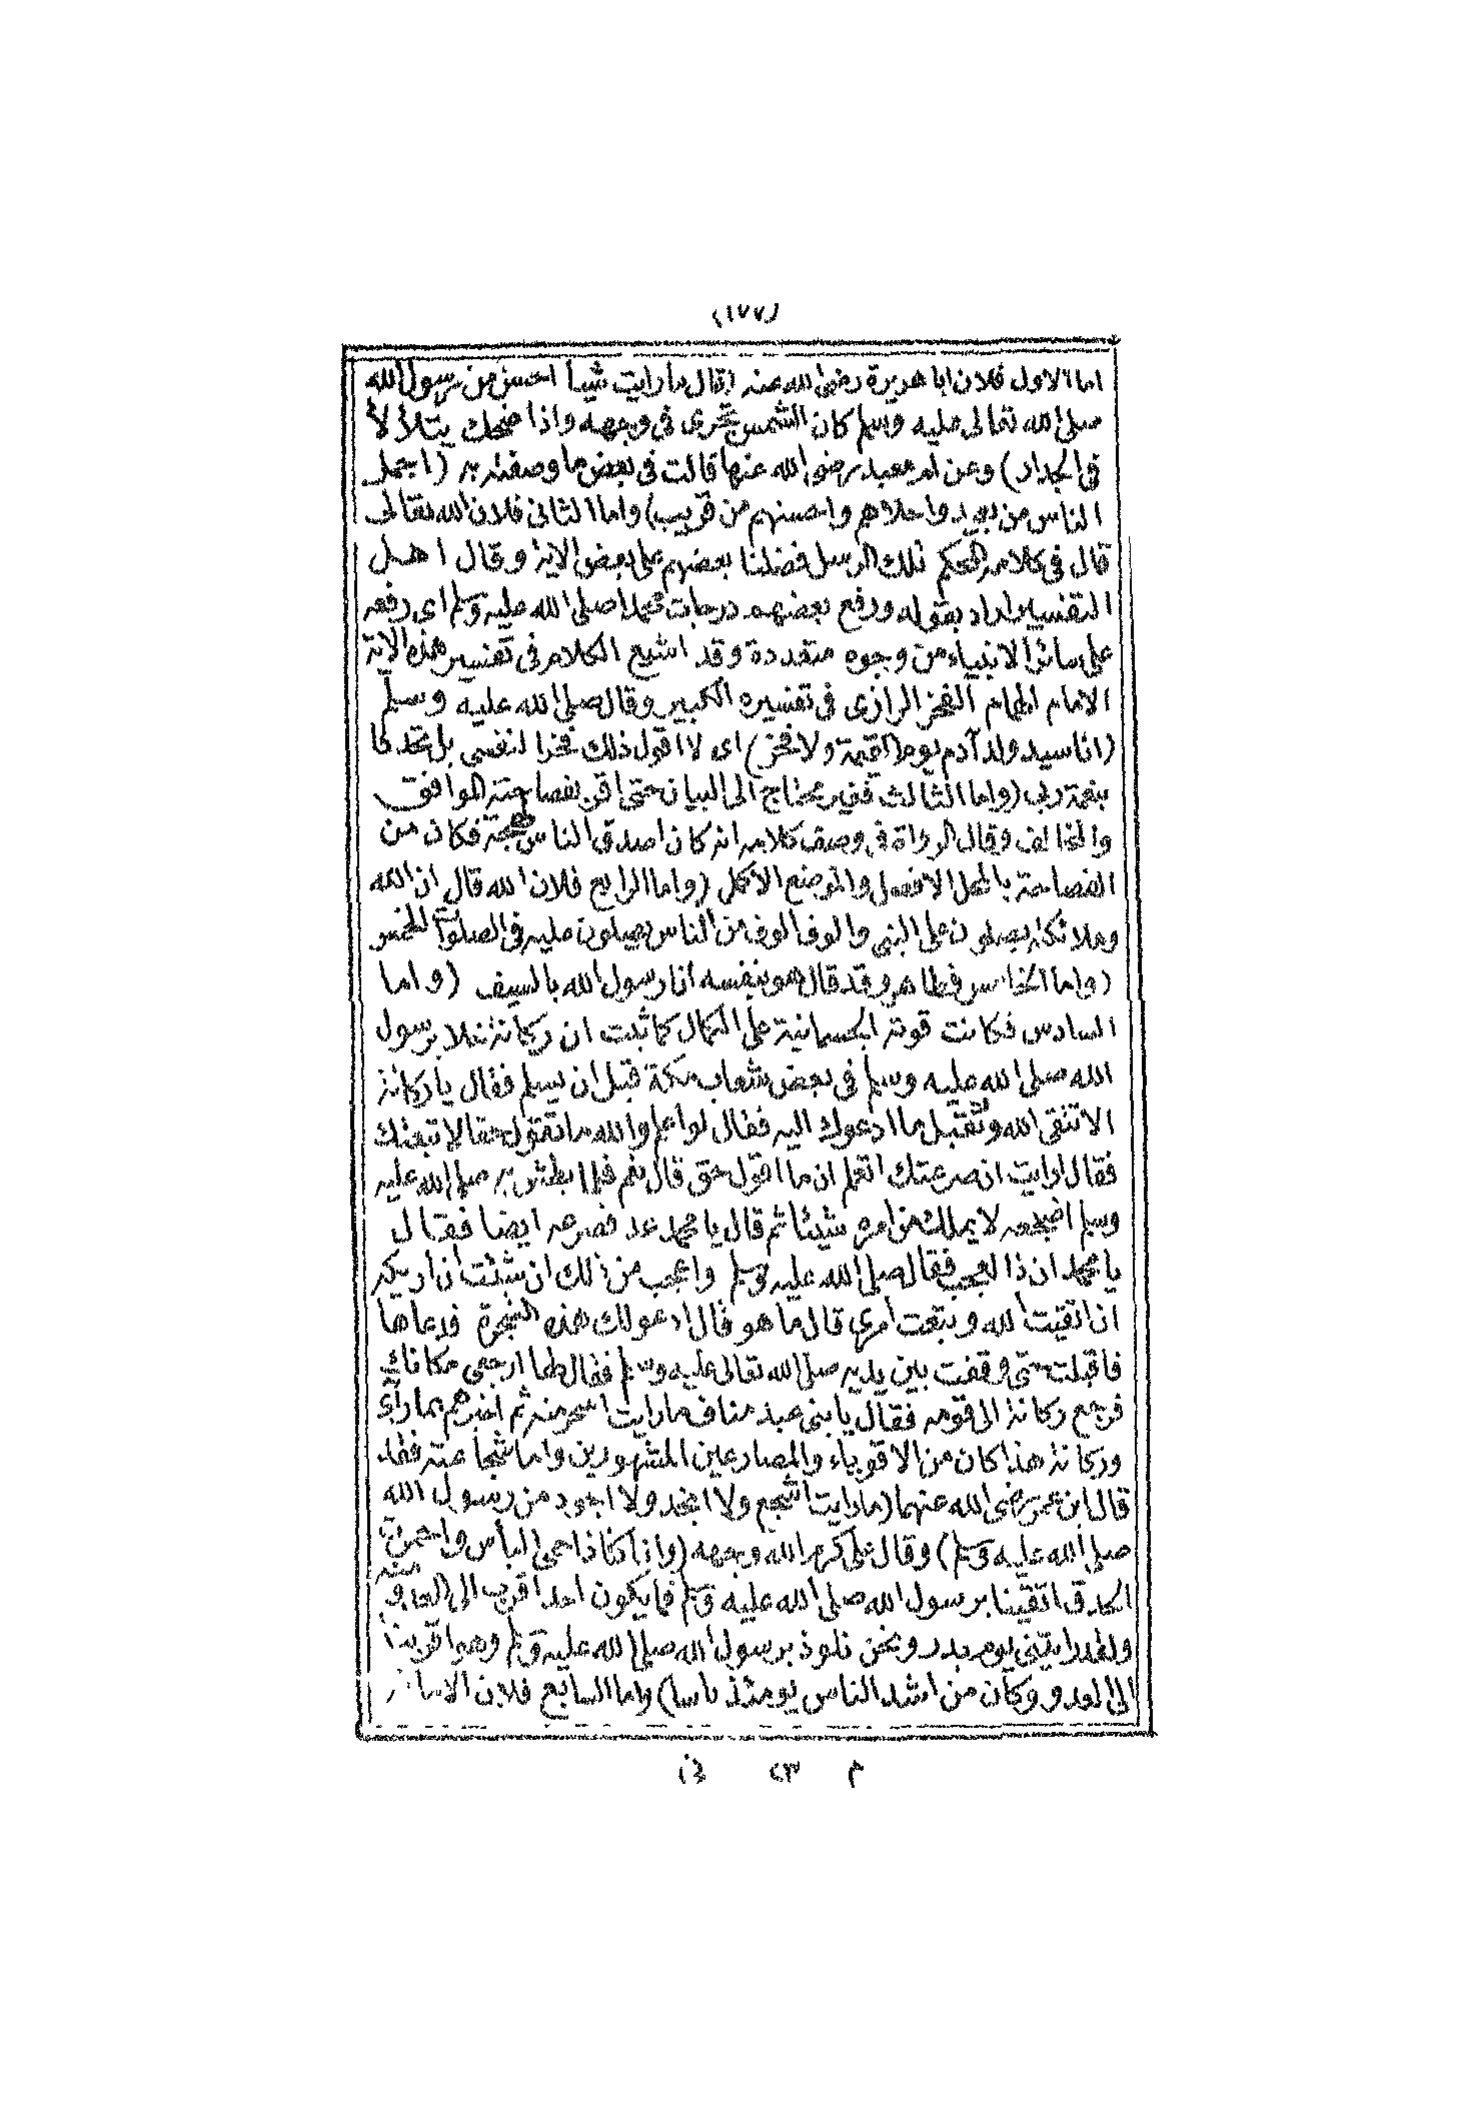 (١٧٧)
اما الاول فلان ابا هريرة رضى الله عنه (قال ما رايت شيأ احسن من رسول الله
صلى الله تعالى عليه وسلم كان الشمس تجرى فى وجهه واذا ضحك يتلألأ
فى الجدار) وعن ام معبد رضى الله عنها قالت فى بعض ما وصفته به (اجمل
الناس من بعيد واحلاهم واحسنهم من قريب) واما الثانى فلان الله تعالى
قال فى كلامه الحكيم تلك الرسل فضلنا بعضهم على بعض الاية وقال اهل
التفسير اراد بقوله ورفع بعضهم درجات محمدا صلى الله عليه وسلم اى رفعه
على سائر الانبياء من وجوه متعددة وقد اشبع الكلام فى تفسير هذه الاية
الامام الهمام الفخر الرازى فى تفسيره الكبير وقال صلى الله عليه وسلم
(انا سيد ولد آدم يوم القيمة ولا فخر) اى لا اقول ذلك فخرا لنفسى بل تحدثا
بنعمة ربى (واما الثالث فغير محتاج الى البيان حتى اقر بفصاحته الموافق
والمخالف وقال الرواة فى وصف كلامه انه كان اصدق الناس لهجة فكان من
الفصاحة بالمحل الافضل والموضع الاكمل (واما الرابع فلان الله قال ان الله
وملائكته يصلون على النبى والوف الوف من الناس يصلون عليه فى الصلوت الخمس
(واما الخامس فظاهر وقد قال هو بنفسه انا رسول الله بالسيف (واما
السادس فكانت قوته الجسمانية على الكمال كما ثبت ان ركانة خلا برسول
الله صلى الله عليه وسلم فى بعض شعاب مكة قبل ان يسلم فقال يا ركانة
الا تتقى الله وتقبل ما ادعوك اليه فقال لو اعلم والله ما تقول حقا لاتبعتك
فقال ارايت ان صرعتك اتعلم ان ما اقول حق قال نعم فلما بطش به صلى الله عليه
وسلم اضجعه لا يملك من امره شيئا ثم قال يا محمد عد فصرعه ايضا فقال
يا محمد ان ذا لعجب فقال صلى الله عليه وسلم واعجب من ذلك ان شئت ان اريكه
ان اتقيت الله وتبعت امرى قال ما هو قال ادعو لك هذه الشجرة فدعاها
فاقبلت حتى وقفت بين يديه صلى الله تعالى عليه وسلم فقال لها ارجعى مكانك
فرجع ركانة الى قومه فقال يا بنى عبد مناف ما رايت اسحر منه ثم اخبرهم بما رآى
وركانة هذا كان من الاقوياء والمصارعين المشهورين واما شجاعته فقد
قال ابن عمر رضى الله عنهما (ما رايت اشجع ولا انجد ولا اجود من رسول الله
صلى الله عليه وسلم) وقال على كرم الله وجهه (وانا كنا اذا حمى البأس واحمرت
الحدق اتقينا برسول الله صلى الله عليه وسلم فما يكون احد اقرب الى العدو منه
ولقد رايتنى يوم بدر ونحن نلوذ برسول الله صلى الله عليه وسلم وهو اقربنا
الى العدو وكان من اشد الناس يومئذ باسا) واما السابع فلان
م (٢٣